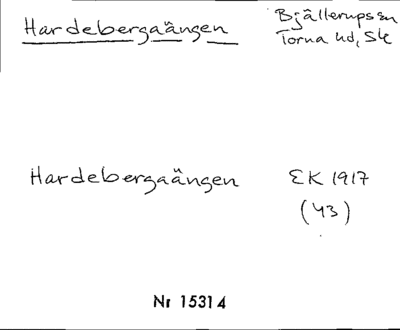 Hardebergaängen
Bjällerups sn
Torna hd, Sk
Hardebergaängen
EK 1917
(43)
Nr 15314